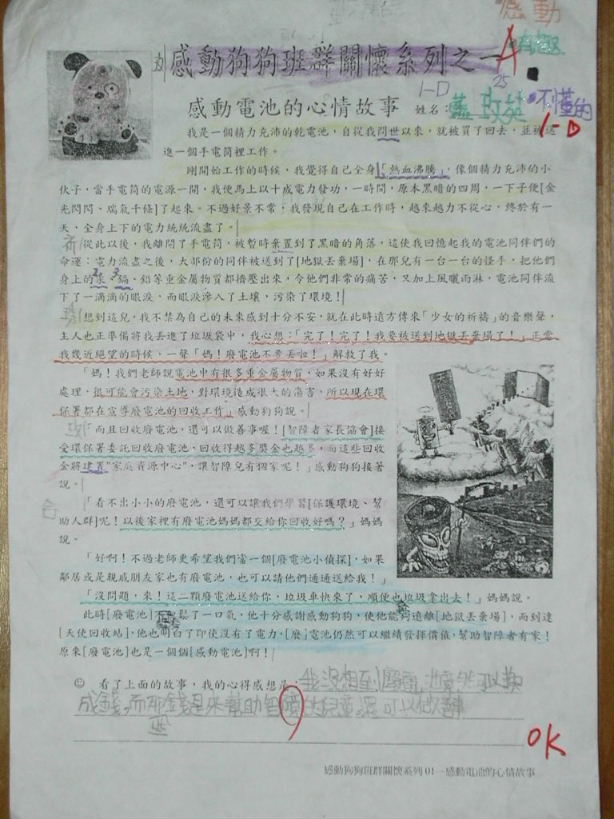 感動
有趣
感動狗狗班群關懷系列之一
A
1-D
25
不懂的
感動電池的心情故事 姓名：
1-D
我是一個精力充沛的乾電池，自從我問世以來，就被買了回去，並被送
進一個手電筒裡工作。
剛開始工作的時候，我覺得自己全身「熱血沸騰」，像個精力充沛的小
伙子，當手電筒的電源一開，我便馬上以十成電力發功，一時間，原本黑暗的四周，一下子便[金
光閃閃、瑞氣千條]了起來。不過好景不常，我發現自己在工作時，越來越力不從心，終於有一
天，全身上下的電力統統流盡了。
從此以後，我離開了手電筒，被暫時棄置到了黑暗的角落，這使我回憶起我的電池同伴們的
命運：電力流盡之後，大部份的同伴被送到了[地獄丟棄場]，在那兒有一台一台的怪手，把他們
身上的汞、鎘、鉛等重金屬物質都擠壓出來，令他們非常的痛苦，又加上風曬雨淋，電池同伴流
下了一滴滴的眼淚，而眼淚滲入了土壤，污染了環境！
想到這兒，我不禁為自己的未來感到十分不安，就在此時遠方傳來「少女的祈禱」的音樂聲，
主人也正準備將我丟進了垃圾袋中，我心想：「完了！完了！我要被送到地獄丟棄場了！」正當
我幾近絕望的時候，一聲「媽！廢電池不要丟啦！」解救了我。
「媽！我們老師說電池中有很多重金屬物質，如果沒有好好
處理，很可能會污染土地，對環境造成很大的傷害，所以現在環
保署都在宣導廢電池的回收工作。」感動狗狗說。
而且回收廢電池，還可以做善事喔！[智障者家長協會]接
受環保署委託回收廢電池，回收得越多獎金也越多，而這些回收
金將建置"家庭資源中心"，讓智障兒有個家呢！」感動狗狗接著
說。
「看不出小小的廢電池，還可以讓我們學習[保護環境、幫
助人群]呢！以後家裡有廢電池媽媽都交給你回收好嗎？」媽媽
說。
「好啊！不過老師更希望我們當一個[廢電池小偵探]，如果
鄰居或是親戚朋友家也有廢電池，也可以請他們通通送給我！」
「沒問題，來！這二顆廢電池送給你，垃圾車快來了，順便也把垃圾拿出去！」媽媽說。
此時[廢電池]鬆了一口氣，他十分感謝感動狗狗，使他能夠遠離[地獄丟棄場]，而到達
[天使回收站]，他也明白了即使沒有了電力，[廢]電池仍然可以繼續發揮價值，幫助智障者有家！
原來[廢電池]也是一個個[感動電池]啊！
☺ 看了上面的故事，我的心得感想是：我沒想到廢電池竟然可以換
成錢，而那些錢是來幫助智障的兒童，還可以做善事
OK
感動狗狗班群關懷系列 01－感動電池的心情故事